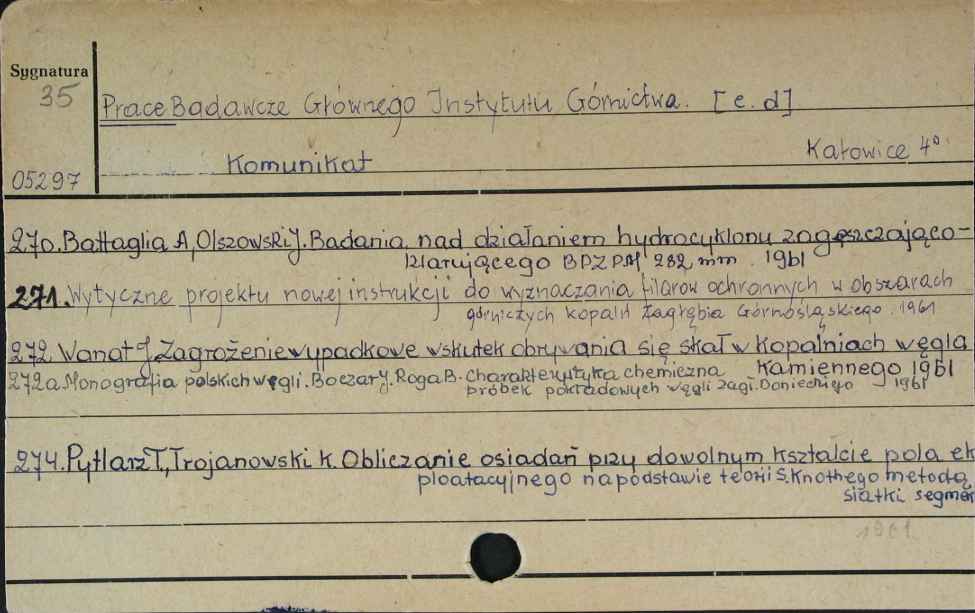 Sygnatura
35
Prace Badawcze Głównego Instytutu Górnictwa. [e. d]
Komunikat
Katowice 4°
05297
270. Battaglia A, Olszowski J. Badania nad działaniem hydrocyklonu zagęszczająco-
klarującego BPZPW 282 mm. 1961
271. Wytyczne projektu nowej instrukcji do wyznaczania filarów ochronnych w obszarach
górniczych kopalń Zagłębia Górnośląskiego. 1961
272 Wanat J Zagrożenie wypadkowe wskutek obrywania się skał w kopalniach węgla
Kamiennego 1961
272a Monografia polskich węgli. Boczar J. Roga B. Charakterystyka chemiczna
próbek pokładowych węgli zagł. Donieckiego 1961
274. Pytlarz T, Trojanowski K. Obliczanie osiadań przy dowolnym kształcie pola ek
ploatacyjnego na podstawie teorii S. Knothego metodą
siatki segmen
1961